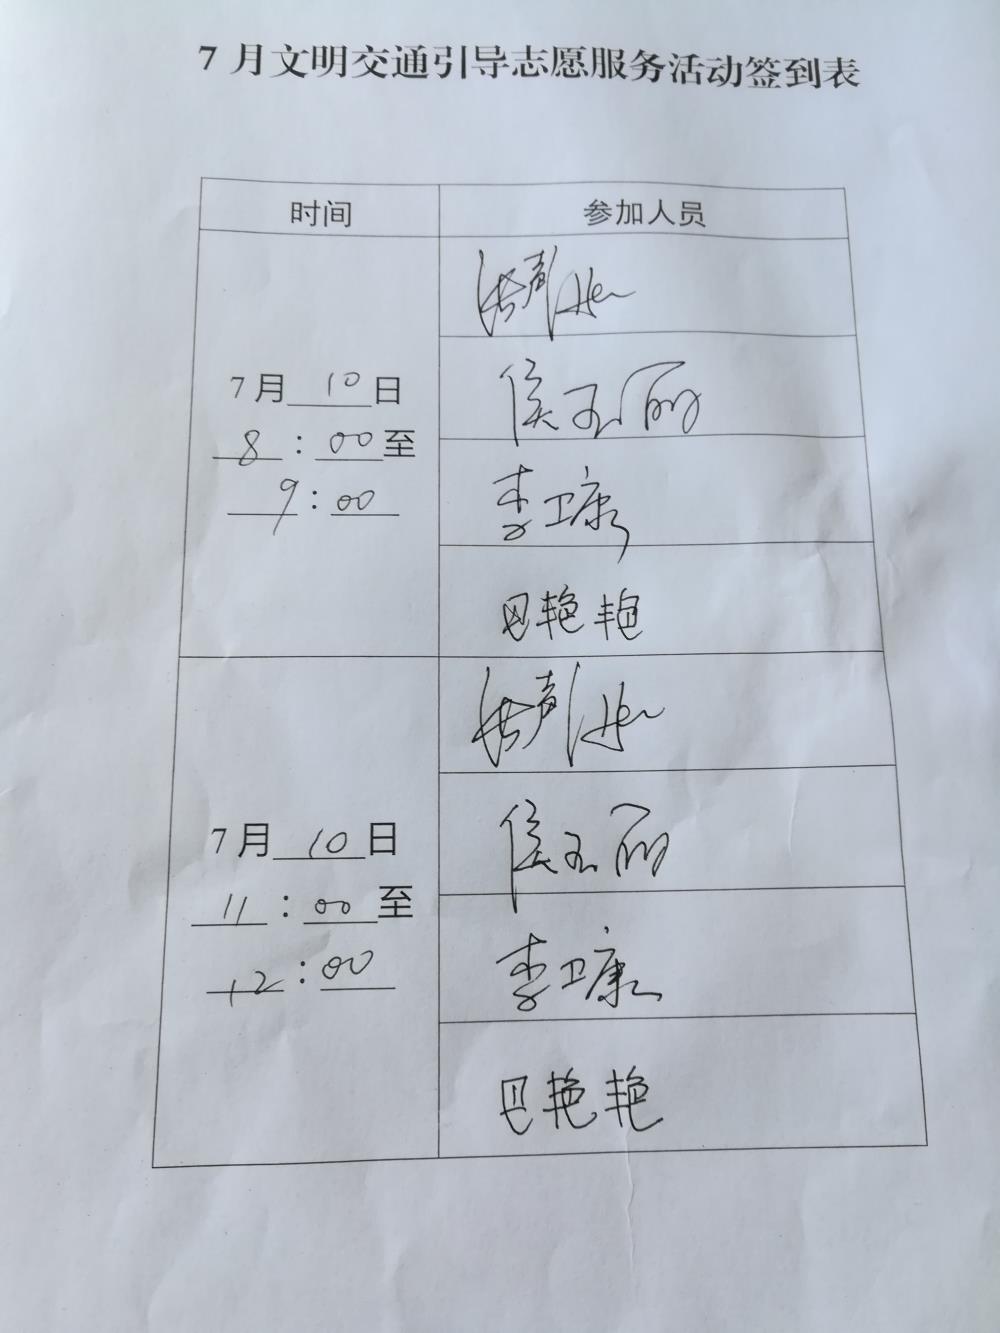 7月文明交通引导志愿服务活动签到表
时间
参加人员
7月10日
8:00至
9:00
侯玉丽
李卫康
巴艳艳
7月10日
11:00至
12:00
侯玉丽
李卫康
巴艳艳